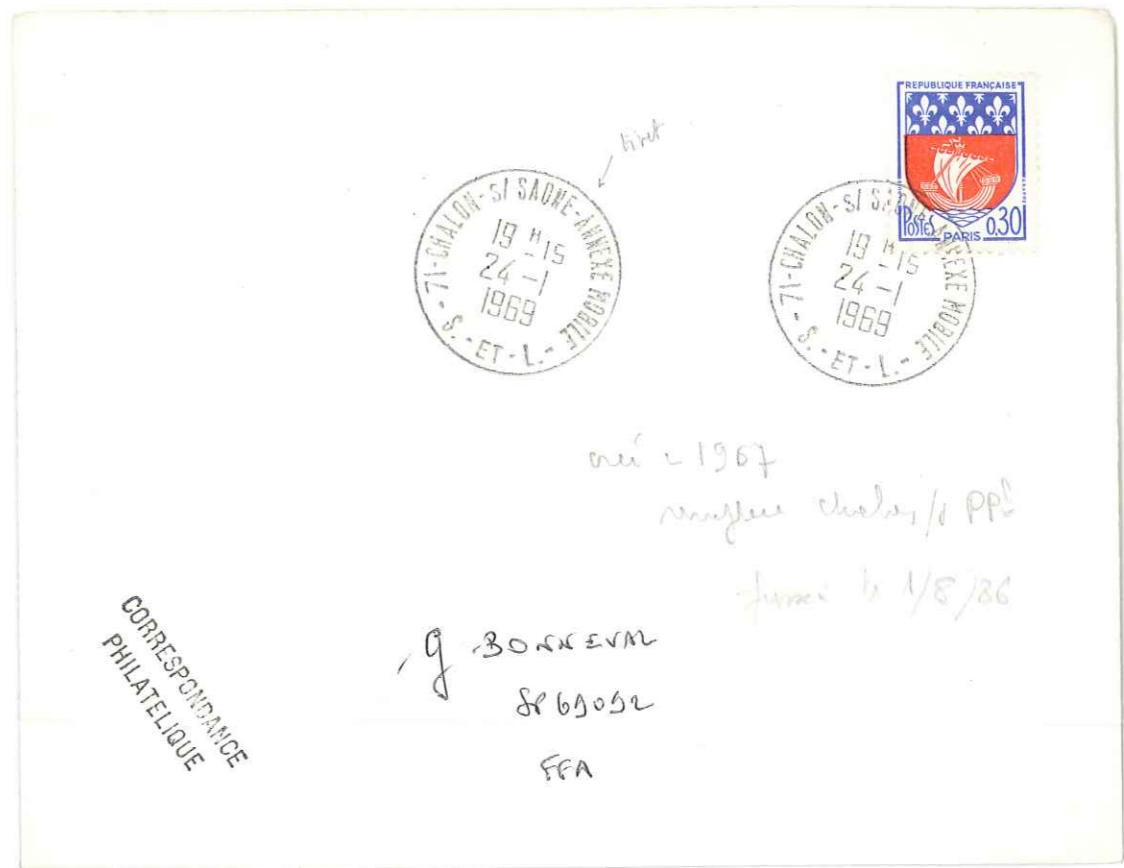 REPUBLIQUE FRANÇAISE
POSTES PARIS 0,30
tiret
71-CHALON-S/ SAONE-ANNEXE MOBILE
19 H -15
24 -1
1969
- S.-ET-L.-
71-CHALON-S/ SAONE-ANNEXE MOBILE
19 H -15
24 -1
1969
- S.-ET-L.-
1967
PPL
le 1/8/86
CORRESPONDANCE
PHILATELIQUE
g BONNEVAL
SP 69092
FFA